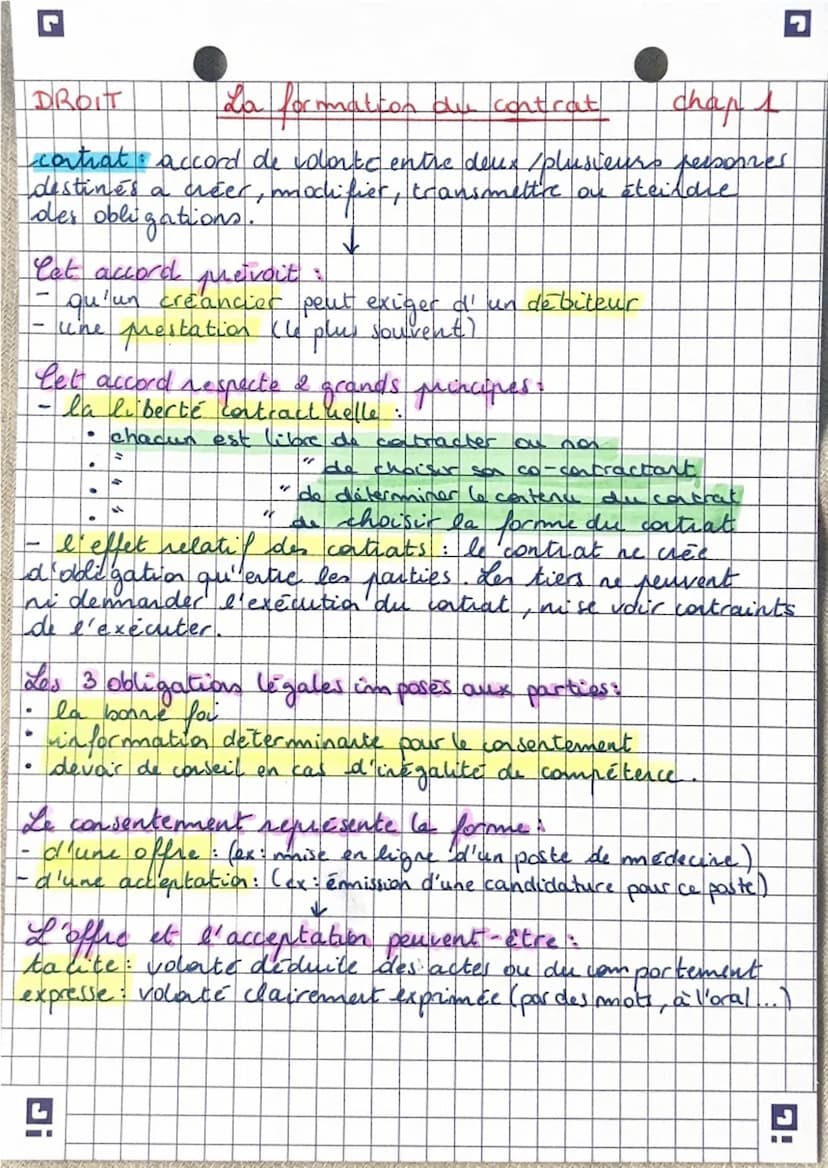 DROIT La formation du contrat chap 1
contrat : accord de volonté entre deux / plusieurs personnes
destinés a créer, modifier, transmettre ou éteindre
des obligations.
Cet accord prévoit :
- qu'un créancier peut exiger d'un débiteur
- une prestation (le plus souvent)
Cet accord respecte 2 grands principes :
- la liberté contractuelle :
• chacun est libre de contracter ou non
• " " de choisir son co-contractant
• " " de déterminer le contenu du contrat
• " " de choisir la forme du contrat
- l'effet relatif des contrats : le contrat ne crée
d'obligation qu'entre les parties. Les tiers ne peuvent
ni demander l'exécution du contrat, ni se voir contraints
de l'exécuter.
Les 3 obligations légales imposés aux parties :
• la bonne foi
• information déterminante pour le consentement
• devoir de conseil en cas d'inégalité de compétence.
Le consentement représente la forme :
- d'une offre : (ex : mise en ligne d'un poste de médecine)
- d'une acceptation : (ex : émission d'une candidature pour ce poste)
L'offre et l'acceptation peuvent-être :
tacite : volonté déduite des actes ou du comportement
expresse : volonté clairement exprimée (par des mots, à l'oral...)